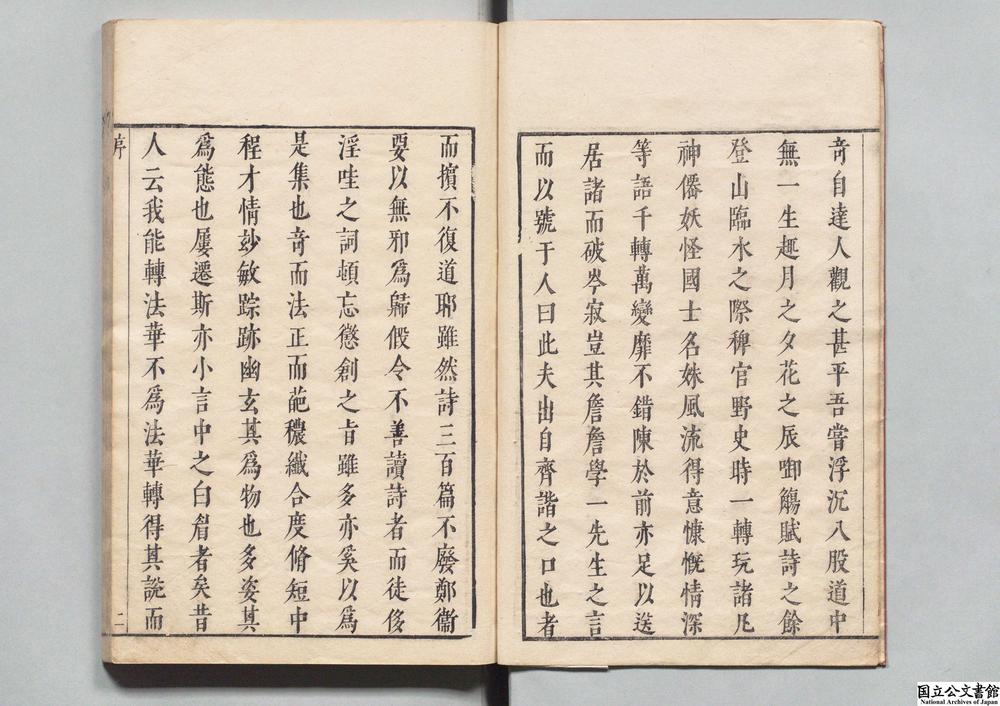 竒自達人觀之甚平吾嘗浮沉八股道中
無一生趣月之夕花之辰啣觴賦詩之餘
登山臨水之際稗官野史時一轉玩諸凡
神僊妖怪國士名姝風流得意慷慨情深
等語千轉萬變靡不錯陳於前亦足以送
居諸而破岑寂豈其詹詹學一先生之言
而以號于人曰此夫出自齊諧之口也者
而擯不復道耶雖然詩三百篇不廢鄭衞
要以無邪爲歸假令不善讀詩者而徒侈
淫哇之詞頓忘懲創之旨雖多亦奚以爲
是集也竒而法正而葩穠纖合度脩短中
程才情玅敏踪跡幽玄其爲物也多姿其
爲態也屢遷斯亦小言中之白眉者矣昔
人云我能轉法華不爲法華轉得其說而
序
二
国立公文書館
National Archives of Japan